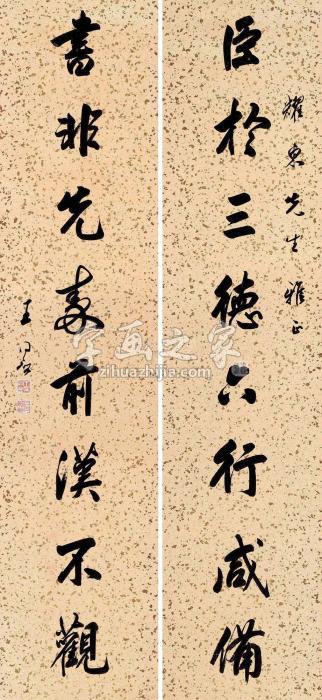 耀東先生雅正
臣於三德六行咸備
書非先秦前漢不觀
王
字画之家
zihuazhijia.com